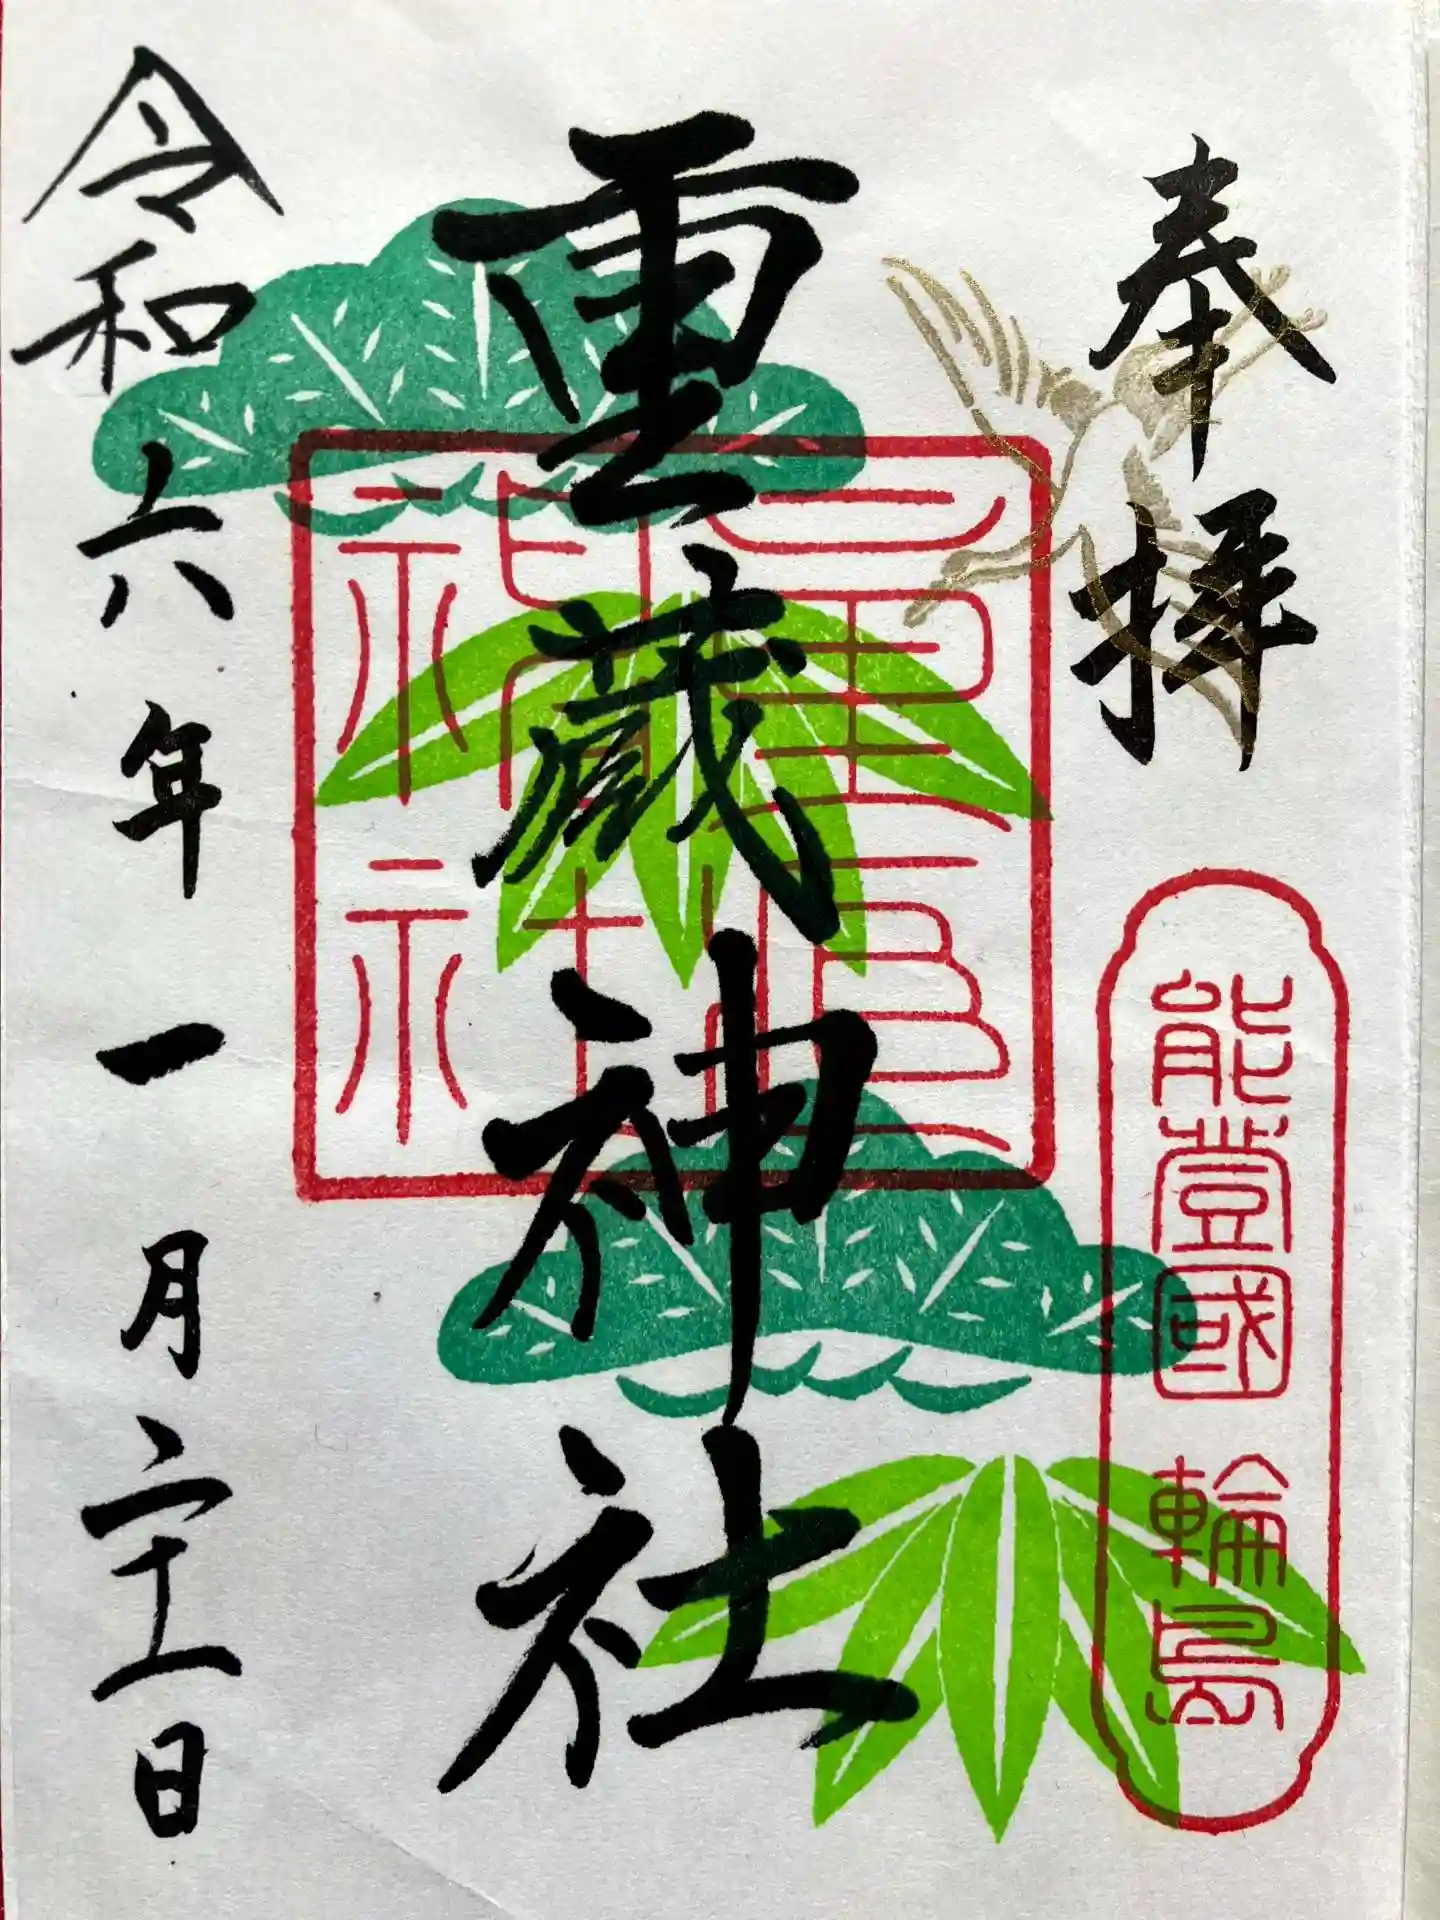 奉拝
能登國 輪島
重蔵神社
神社
令和六年一月二十一日